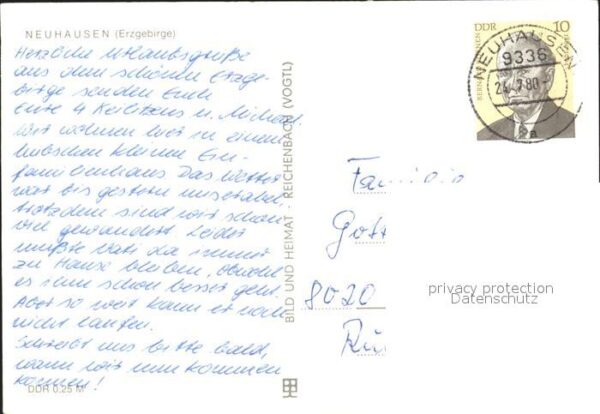 NEUHAUSEN (Erzgebirge)
Herzliche Urlaubsgrüße
aus dem schönen Erzge-
birge senden Euch
Eure 4 u. Michael.
Wir wohnen hier in einem
hübschen kleinen Ein-
familienhaus. Das Wetter
war bis gestern miserabel,
trotzdem sind wir schon
viel gewandert. Leider
mußte Vati da immer
zu Hause bleiben, obwohl
es ihm schon besser geht.
Aber so weit kann er noch
nicht laufen.
Schreibt uns bitte bald,
wann wir nun kommen
können!
DDR 0,25 M
BILD UND HEIMAT · REICHENBACH (VOGTL)
DDR 10
NEUHAUSEN
9336
24.7.80
a
Familie
Gott
8020
privacy protection
Datenschutz